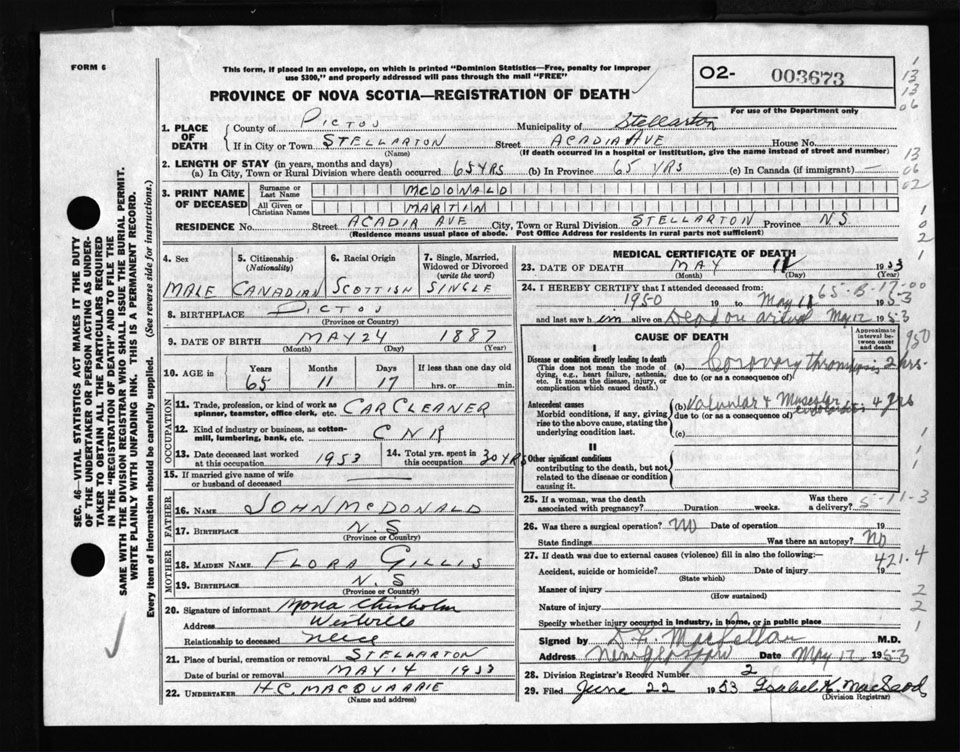 FORM 6
This form, if placed in an envelope, on which is printed "Dominion Statistics—Free, penalty for improper
use $300," and properly addressed will pass through the mail "FREE"
O2- 003673
For use of the Department only
PROVINCE OF NOVA SCOTIA—REGISTRATION OF DEATH
1. PLACE OF DEATH
County of Pictou Municipality of Stellarton
If in City or Town STELLARTON Street ACADIA AVE House No.
(Name) (If death occurred in a hospital or institution, give the name instead of street and number)
2. LENGTH OF STAY (in years, months and days)
(a) In City, Town or Rural Division where death occurred 65 YRS (b) In Province 65 YRS (c) In Canada (if immigrant) —
3. PRINT NAME OF DECEASED
Surname or Last Name MCDONALD
All Given or Christian Names MARTIN
RESIDENCE No. Street ACADIA AVE City, Town or Rural Division STELLARTON Province N.S
(Residence means usual place of abode. Post Office Address for residents in rural parts not sufficient)
4. Sex MALE
5. Citizenship (Nationality) CANADIAN
6. Racial Origin SCOTTISH
7. Single, Married, Widowed or Divorced (write the word) SINGLE
8. BIRTHPLACE PICTOU
(Province or Country)
9. DATE OF BIRTH MAY 24 1887
(Month) (Day) (Year)
10. AGE in Years 65 Months 11 Days 17 If less than one day old hrs. or min.
OCCUPATION
11. Trade, profession, or kind of work as spinner, teamster, office clerk, etc. CAR CLEANER
12. Kind of industry or business, as cotton-mill, lumbering, bank, etc. C N R
13. Date deceased last worked at this occupation 1953
14. Total yrs. spent in this occupation 30 YRS
15. If married give name of wife or husband of deceased —
FATHER
16. NAME JOHN MCDONALD
17. BIRTHPLACE N.S
(Province or Country)
MOTHER
18. MAIDEN NAME FLORA GILLIS
19. BIRTHPLACE N.S
(Province or Country)
20. Signature of informant Mona Chisholm
Address Westville
Relationship to deceased neice
21. Place of burial, cremation or removal STELLARTON
Date of burial or removal MAY 14 1953
22. UNDERTAKER H.C. MACQUARRIE
(Name and address)
MEDICAL CERTIFICATE OF DEATH
23. DATE OF DEATH MAY 1953
(Month) (Day) (Year)
65-B-17-00
24. I HEREBY CERTIFY that I attended deceased from:
1950 19 to May 1953
and last saw h im alive on Dead on arrival May 12 1953
CAUSE OF DEATH
Approximate interval between onset and death
I
Disease or condition directly leading to death
(This does not mean the mode of dying, e.g., heart failure, asthenia, etc. It means the disease, injury, or complication which caused death.)
(a) Coronary thrombosis 2 hrs.
due to (or as a consequence of)
Antecedent causes
Morbid conditions, if any, giving rise to the above cause, stating the underlying condition last.
(b) Valvular & Muscular 4 yrs
due to (or as a consequence of)
(c)
II
Other significant conditions
contributing to the death, but not related to the disease or condition causing it.
25. If a woman, was the death associated with pregnancy? Duration weeks. Was there a delivery?
5-11-3
26. Was there a surgical operation? No Date of operation 19
State findings Was there an autopsy? No
27. If death was due to external causes (violence) fill in also the following:—
421.4
Accident, suicide or homicide? Date of injury 19
(State which)
Manner of injury
(How sustained)
Nature of injury
Specify whether injury occurred in industry, in home, or in public place
Signed by D.F. MacLellan M.D.
Address New Glasgow Date May 17 1953
28. Division Registrar's Record Number 2
29. Filed June 22 1953 Isabel K. MacLeod
(Division Registrar)
SEC. 46—VITAL STATISTICS ACT MAKES IT THE DUTY
OF THE UNDERTAKER OR PERSON ACTING AS UNDER-
TAKER TO OBTAIN ALL THE PARTICULARS REQUIRED
IN THE "REGISTRATION OF DEATH" AND TO FILE THE
SAME WITH THE DIVISION REGISTRAR WHO SHALL ISSUE THE BURIAL PERMIT.
WRITE PLAINLY WITH UNFADING INK. THIS IS A PERMANENT RECORD.
Every item of information should be carefully supplied. (See reverse side for instructions.)
1
13
13
06
13
06
02
1
0
2
1
950
1
1
1
2
2
1